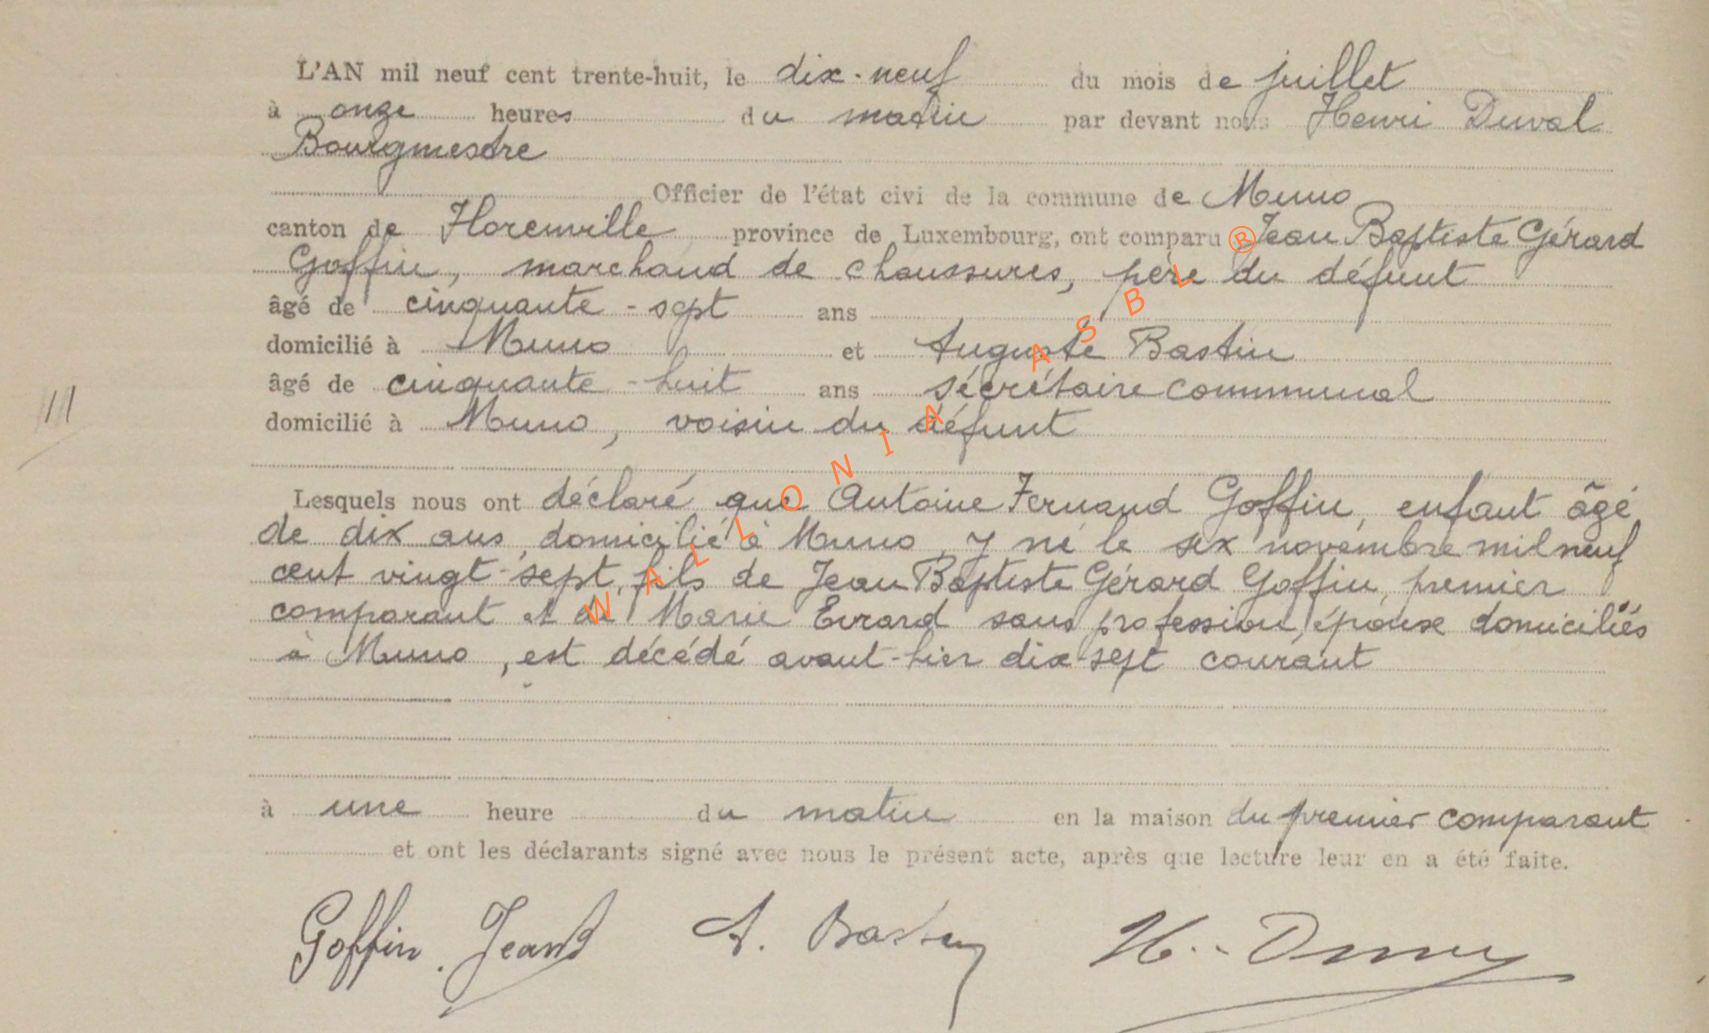 L'AN mil neuf cent trente-huit, le dix-neuf du mois de juillet
à onze heures du matin par devant nous Henri Duval
Bourgmestre
Officier de l'état civi de la commune de Muno
canton de Florenville province de Luxembourg, ont comparu Jean Baptiste Gérard
Goffin, marchand de chaussures, père du défunt
âgé de cinquante-sept ans
domicilié à Muno et Auguste Bastin
âgé de cinquante-huit ans sécrétaire communal
domicilié à Muno, voisin du défunt
Lesquels nous ont déclaré que Antoine Fernand Goffin, enfant âgé
de dix ans, domicilié à Muno, y né le six novembre mil neuf
cent vingt-sept, fils de Jean Baptiste Gérard Goffin, premier
comparant et de Marie Evrard sans profession, épouse domiciliés
à Muno, est décédé avant-hier dix-sept courant
à une heure du matin en la maison du premier comparant
et ont les déclarants signé avec nous le présent acte, après que lecture leur en a été faite.
Goffin. Jean A. Bastin H. Duval
WALLONIA ASBL ®